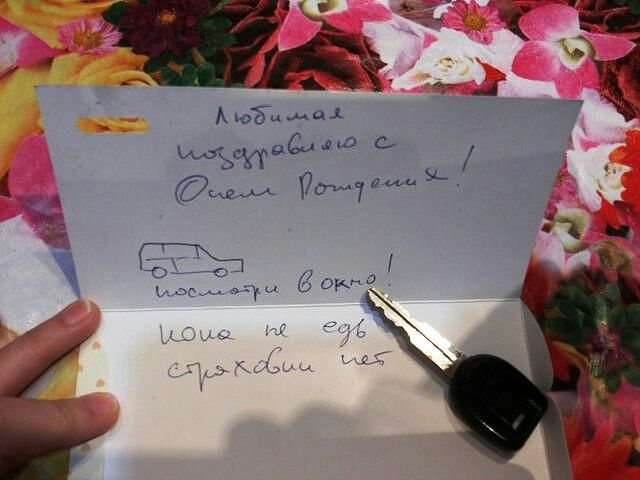 Любимая
поздравляю с
Днем Рождения!
посмотри в окно!
пока не едь
страховки нет